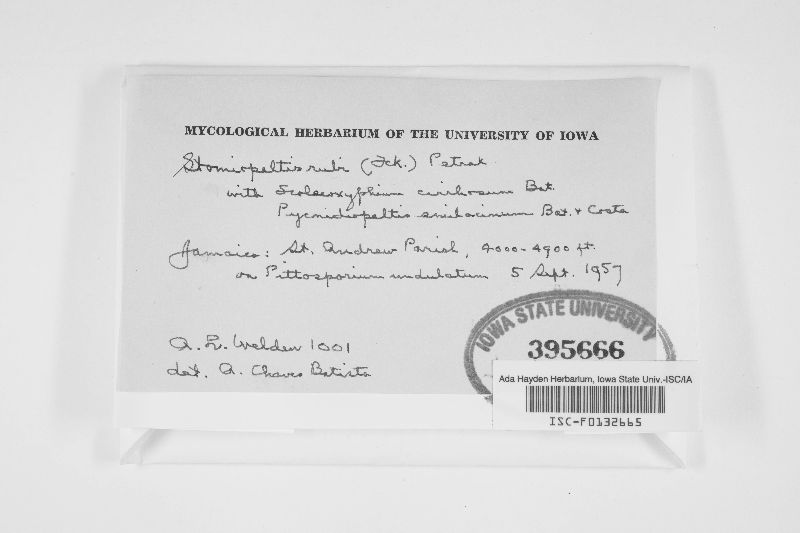 MYCOLOGICAL HERBARIUM OF THE UNIVERSITY OF IOWA
Stomiopeltis rubi (Fck.) Petrak
with Scolecoxyphium cirrhosum Bat.
Pycnidiopeltis smilacinum Bat. + Costa
Jamaica: St. Andrew Parish, 4000-4900 ft.
on Pittosporium undulatum 5 Sept. 1957
A. L. Welden 1001
det. A. Chaves Batista
IOWA STATE UNIVERSITY
395666
Ada Hayden Herbarium, Iowa State Univ.-ISC/IA
ISC-F0132665